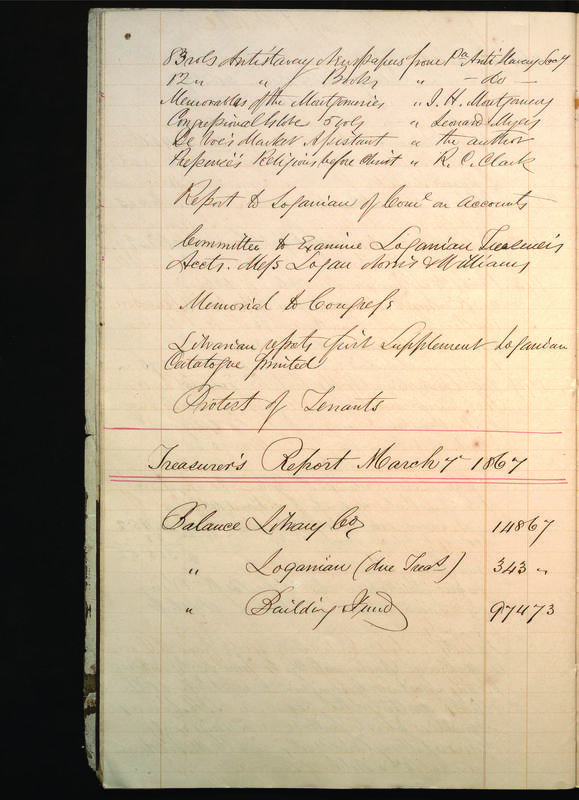 83 vols Antislavery Newspapers from Pa Anti Slavery Socy
12 " " Books " - do -
Memorables of the Montgomeries " J. H. Montgomery
Congressional Globe 5 vols " Leonard Myers
De Voe's Market Assistant " the author
Religions before Christ " R. C. Clark
Report to Loganian of Come on accounts
Committee to Examine Loganian Treasurer's
Accts. Mess Logan Norris & Williams
Memorial to Congress
Librarian reports first Supplement Loganian
Catalogue printed
Protest of Tenants
Treasurer's Report March 7 1867
Balance Library Co 14867
" Loganian (due Treas) 343 "
" Building Fund 97473